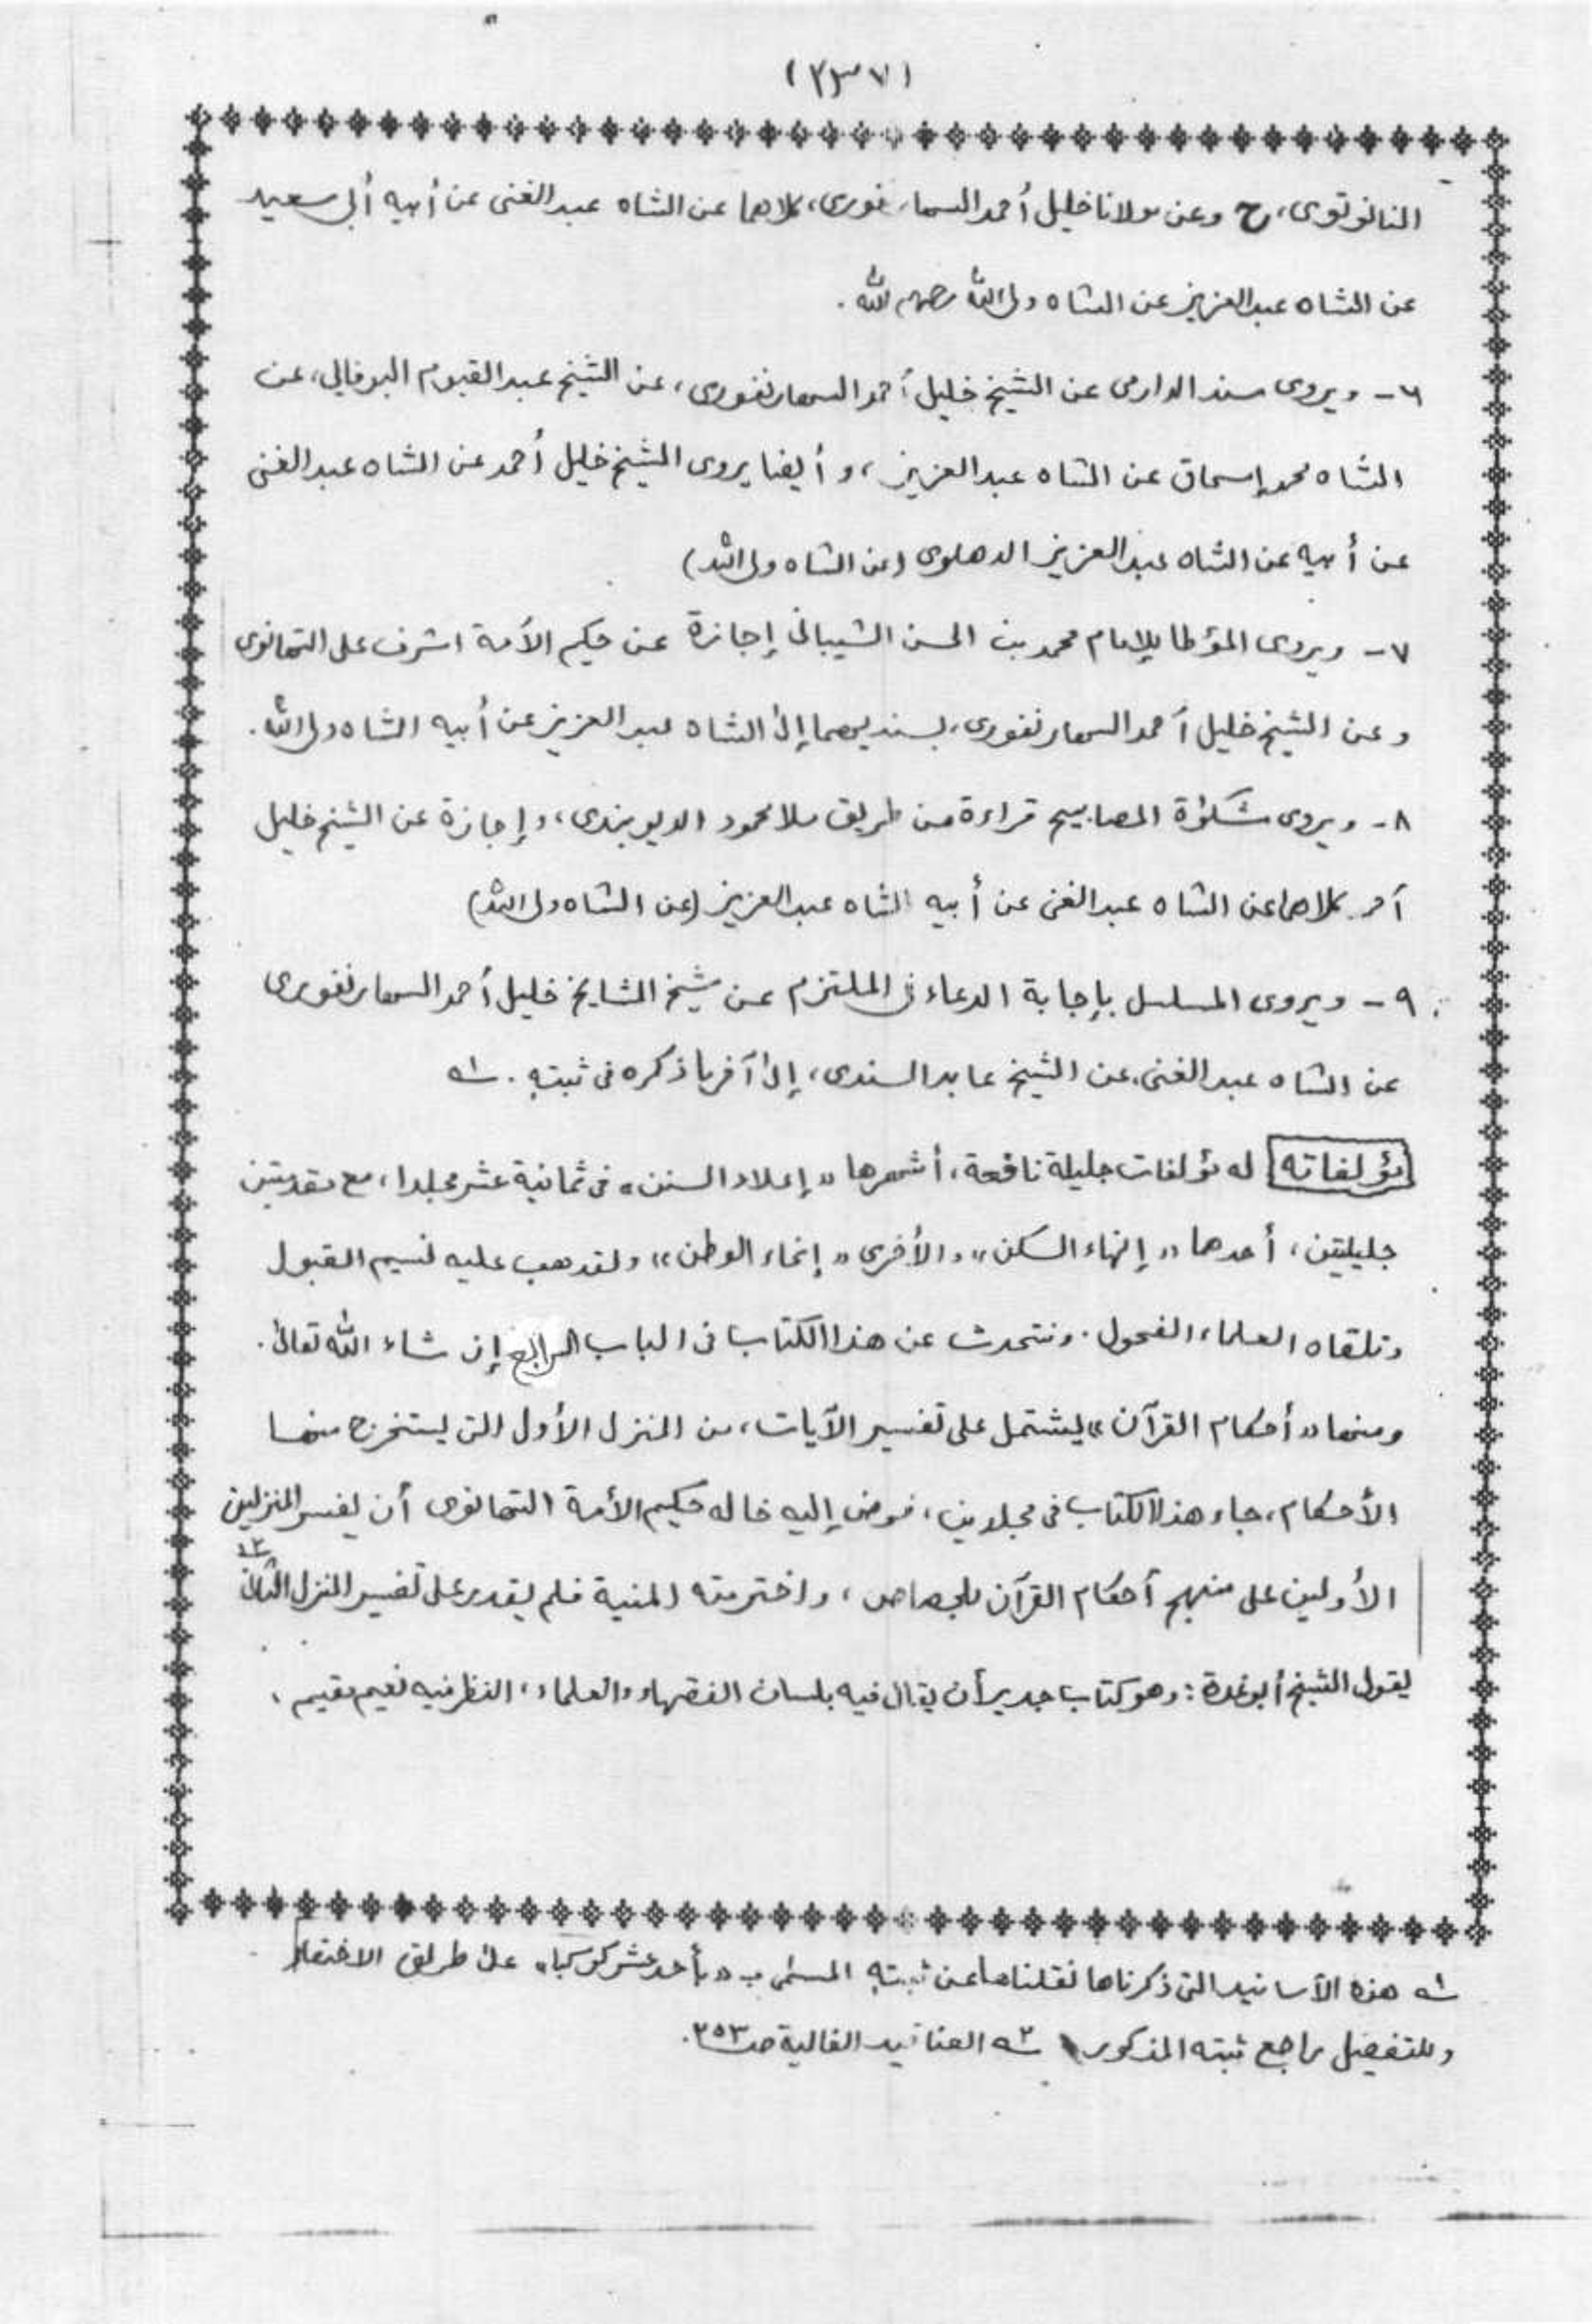 (٢٣٧)
النانوتوى، ح وعن مولانا خليل أحمد السهارنفورى، كلاهما عن الشاه عبد الغنى عن أبيه أبى سعيد
عن الشاه عبد العزيز عن الشاه ولى الله رحمهم الله .
٦ - ويروى سند الدارمى عن الشيخ خليل أحمد السهارنفورى، عن الشيخ عبد القيوم البوفالى، عن
الشاه محمد إسحاق عن الشاه عبد العزيز، وأيضا يروى الشيخ خليل أحمد عن الشاه عبد الغنى
عن أبيه عن الشاه عبد العزيز الدهلوى (عن الشاه ولى الله)
٧ - ويروى المؤطا للإمام محمد بن الحسن الشيبانى إجازة عن حكيم الأمة اشرف على التهانوى
وعن الشيخ خليل أحمد السهارنفورى، بسنديهما إلى الشاه عبد العزيز عن أبيه الشاه ولى الله.
٨ - ويروى مشكوٰة المصابيح قراءة من طريق ملا محمود الديوبندى، وإجازة عن الشيخ خليل
أحمد كلاهما عن الشاه عبد الغنى عن أبيه الشاه عبد العزيز (عن الشاه ولى الله)
٩ - ويروى المسلسل بإجابة الدعاء فى الملتزم عن شيخ المشايخ خليل أحمد السهارنفورى
عن الشاه عبد الغنى، عن الشيخ عابد السندى، إلى آخر ما ذكره فى ثبته . ؂١
مؤلفاته له مؤلفات جليلة نافعة، أشهرها «إعلاء السنن» فى ثمانية عشر مجلدا، مع مقدمتين
جليلتين، أحدهما «إنهاء السكن» والأخرى «إنجاء الوطن» ولقد هب عليه نسيم القبول
وتلقاه العلماء الفحول. ونتحدث عن هذا الكتاب فى الباب الرابع إن شاء الله تعالى.
ومنها «أحكام القرآن» يشتمل على تفسير الآيات، من المنزل الأول التى يستخرج منها
الأحكام، جاء هذا الكتاب فى مجلدين، فوض إليه خاله حكيم الأمة التهانوى أن يفسر المنزلين
الأولين على منهج أحكام القرآن للجصاص، واخترمته المنية فلم يقدر على تفسير المنزل الثانى ؂٢
يقول الشيخ أبوغدة: وهو كتاب جدير أن يقال فيه بلسان الفقهاء والعلماء، النظر فيه نعيم مقيم،
؂١ هذه الأسانيد التى ذكرناها نقلناها عن ثبته المسمى بـ «بأحد عشر كوكبا» على طريق الاختصار
وللتفصيل راجع ثبته المذكور ؂٢ العناقيد الغالية صـ ٢٥٣.